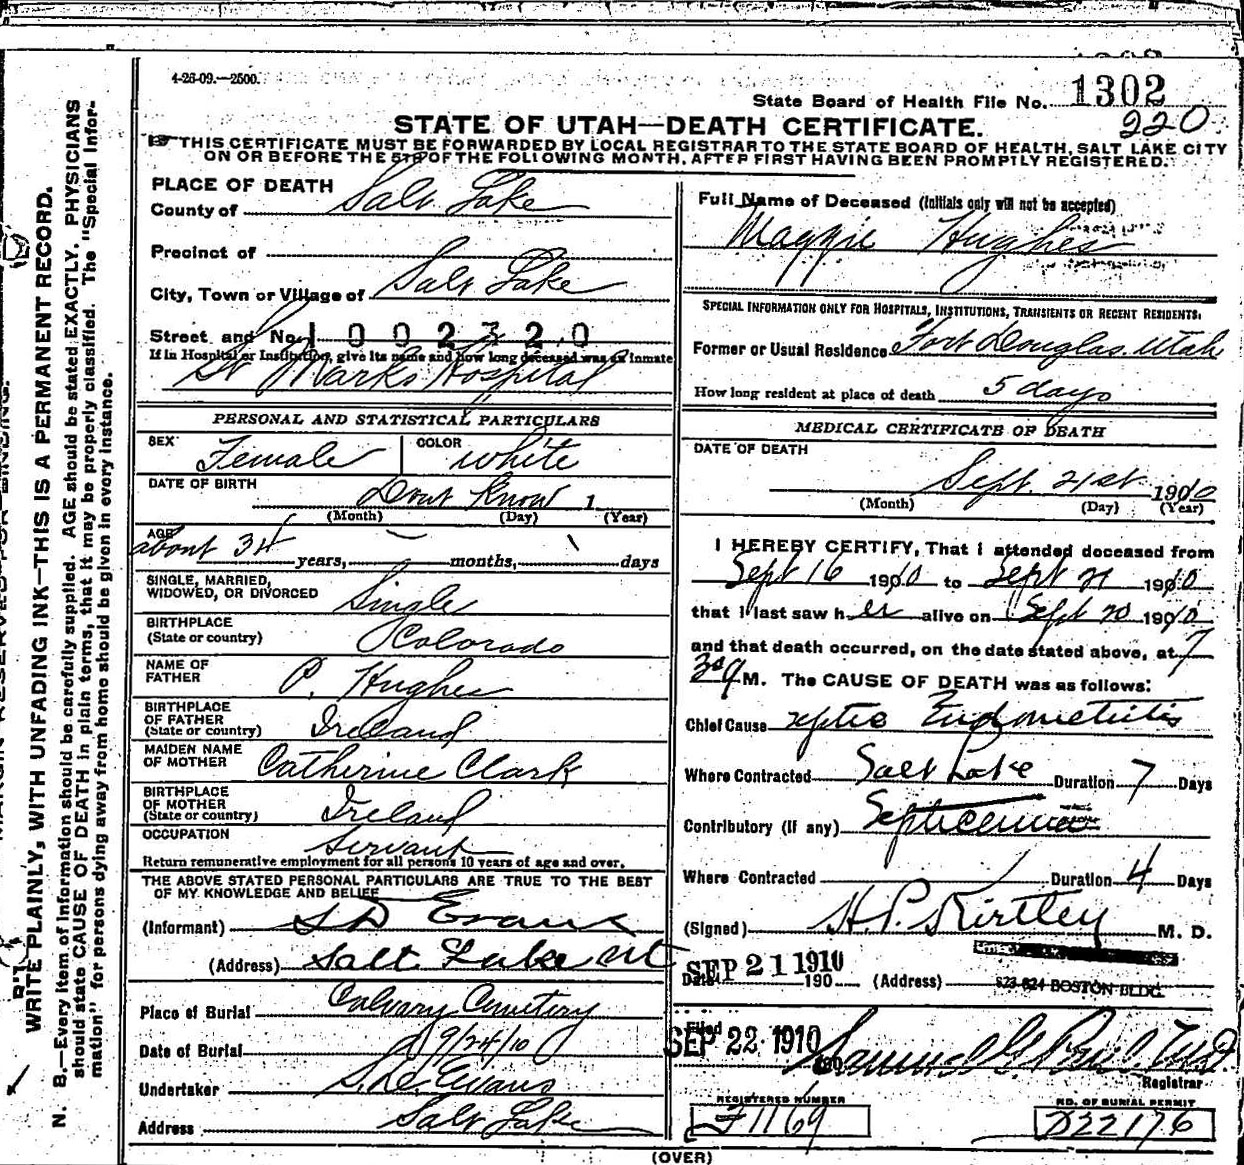 4-26-09.—2500.
State Board of Health File No. 1302
220
STATE OF UTAH—DEATH CERTIFICATE.
THIS CERTIFICATE MUST BE FORWARDED BY LOCAL REGISTRAR TO THE STATE BOARD OF HEALTH, SALT LAKE CITY
ON OR BEFORE THE 5TH OF THE FOLLOWING MONTH, AFTER FIRST HAVING BEEN PROMPTLY REGISTERED.
WRITE PLAINLY, WITH UNFADING INK—THIS IS A PERMANENT RECORD.
N. B.—Every item of information should be carefully supplied. AGE should be stated EXACTLY. PHYSICIANS
should state CAUSE OF DEATH in plain terms, that it may be properly classified. The "Special Infor-
mation" for persons dying away from home should be given in every instance.
PLACE OF DEATH
County of Salt Lake
Precinct of
City, Town or Village of Salt Lake
Street and No. 1002320
If in Hospital or Institution, give its name and how long deceased was an inmate
St Marks Hospital
PERSONAL AND STATISTICAL PARTICULARS
SEX Female COLOR White
DATE OF BIRTH Dont Know 1
(Month) (Day) (Year)
AGE about 34 years, months, days
SINGLE, MARRIED,
WIDOWED, OR DIVORCED Single
BIRTHPLACE
(State or country) Colorado
NAME OF
FATHER P. Hughes
BIRTHPLACE
OF FATHER
(State or country) Ireland
MAIDEN NAME
OF MOTHER Catherine Clark
BIRTHPLACE
OF MOTHER
(State or country) Ireland
OCCUPATION Servant
Return remunerative employment for all persons 10 years of age and over.
THE ABOVE STATED PERSONAL PARTICULARS ARE TRUE TO THE BEST
OF MY KNOWLEDGE AND BELIEF
(Informant) S D Evans
(Address) Salt Lake Ut
Place of Burial Calvary Cemetery
Date of Burial 9/24/10
Undertaker S. D. Evans
Address Salt Lake
Full Name of Deceased (Initials only will not be accepted)
Maggie Hughes
SPECIAL INFORMATION ONLY FOR HOSPITALS, INSTITUTIONS, TRANSIENTS OR RECENT RESIDENTS:
Former or Usual Residence Fort Douglas. Utah
How long resident at place of death 5 days
MEDICAL CERTIFICATE OF DEATH
DATE OF DEATH
Sept. 21st 1910
(Month) (Day) (Year)
I HEREBY CERTIFY, That I attended deceased from
Sept 16 1910 to Sept 21 1910
that I last saw her alive on Sept 20 1910
and that death occurred, on the date stated above, at 7
M. The CAUSE OF DEATH was as follows:
Chief Cause septic Endometritis
Where Contracted Salt Lake Duration 7 Days
Contributory (if any) Septicemia
Where Contracted Duration 4 Days
(Signed) H. P. Kirtley M. D.
SEP 21 1910
Date 190 (Address) 523-524 BOSTON BLDG.
Filed SEP 22 1910 190
Registrar
REGISTERED NUMBER
F1169
NO. OF BURIAL PERMIT
D22176
(OVER)